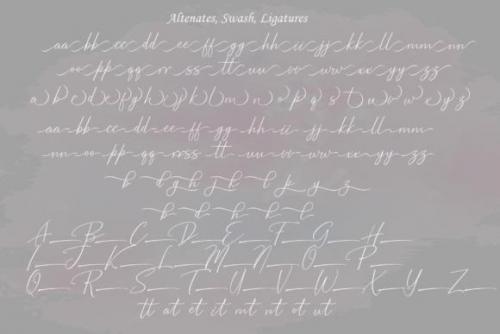 Altenates, Swash, Ligatures
aa bb cc dd ee ff gg hh ii jj kk ll mm nn
oo pp qq rr ss tt uu vv ww xx yy zz
a b c d e f g h i j k l m n o p q r s t u v w x y z
aa bb cc dd ee ff gg hh ii jj kk ll mm
nn oo pp qq rrss tt uu vv ww xx yy zz
A B C D E F G H
I J K L M N O P
Q R S T U V W X Y Z
tt at et it mt nt ot ut